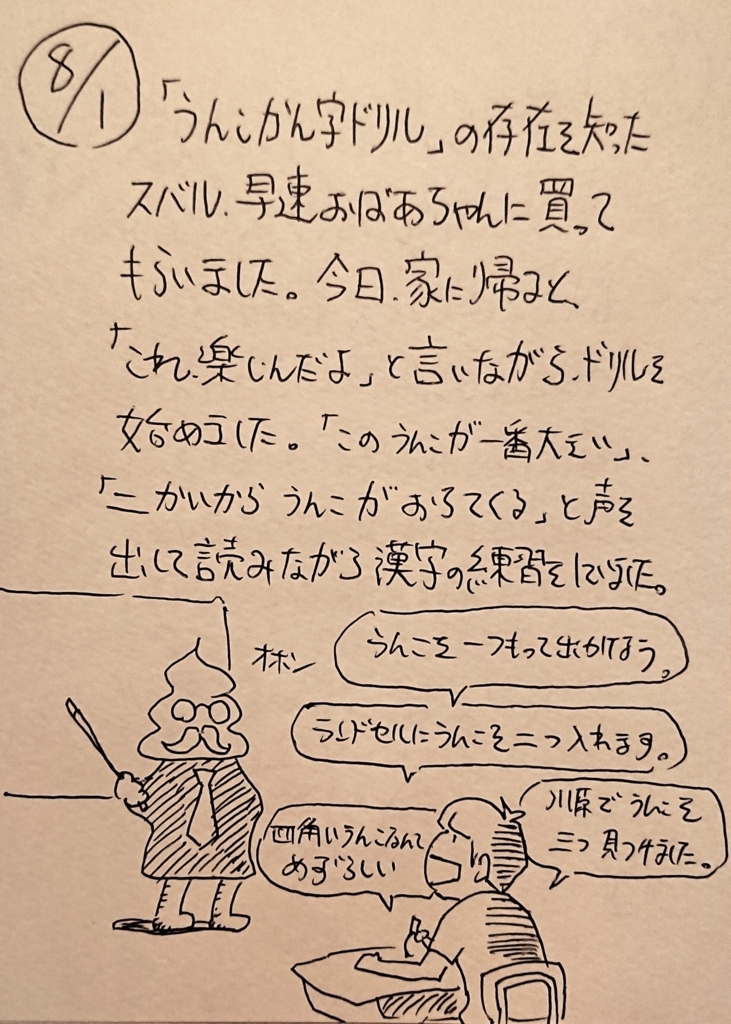 8/1
「うんこかん字ドリル」の存在を知った
スバル、早速おばあちゃんに買って
もらいました。今日、家に帰ると、
「これ、楽しんだよ」と言いながら、ドリルを
始めました。「このうんこが一番大きい」、
「二かいから うんこが おちてくる」と声を
出して読みながら漢字の練習をしてました。
オホン
うんこを一つもって出かけよう。
ランドセルにうんこを二つ入れます。
川原でうんこを
三つ見つけました。
四角いうんこなんて
めずらしい